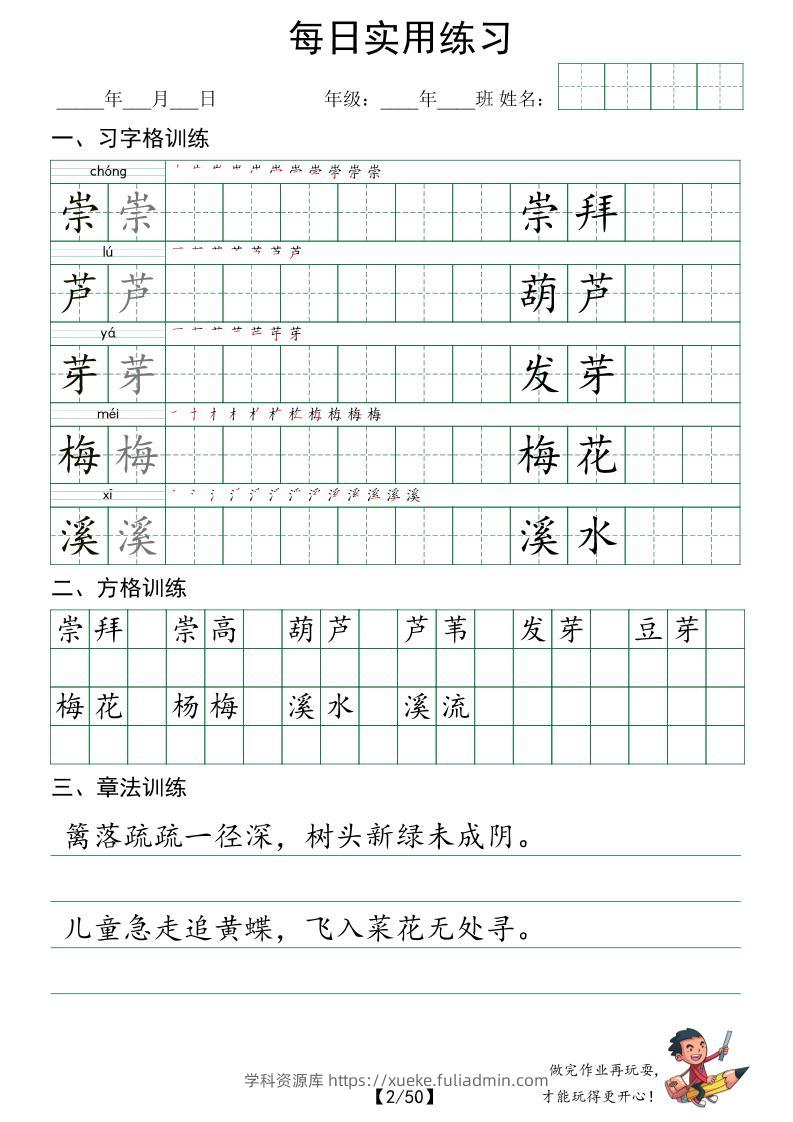 每日实用练习
_____年___月___日 年级：____年____班 姓名：
一、习字格训练
chóng
崇 崇 崇 拜
lú
芦 芦 葫 芦
yá
芽 芽 发 芽
méi
梅 梅 梅 花
xī
溪 溪 溪 水
二、方格训练
崇 拜 崇 高 葫 芦 芦 苇 发 芽 豆 芽
梅 花 杨 梅 溪 水 溪 流
三、章法训练
篱落疏疏一径深，树头新绿未成阴。
儿童急走追黄蝶，飞入菜花无处寻。
做完作业再玩耍，
才能玩得更开心！
学科资源库 https://xueke.fuliadmin.com
【2/50】